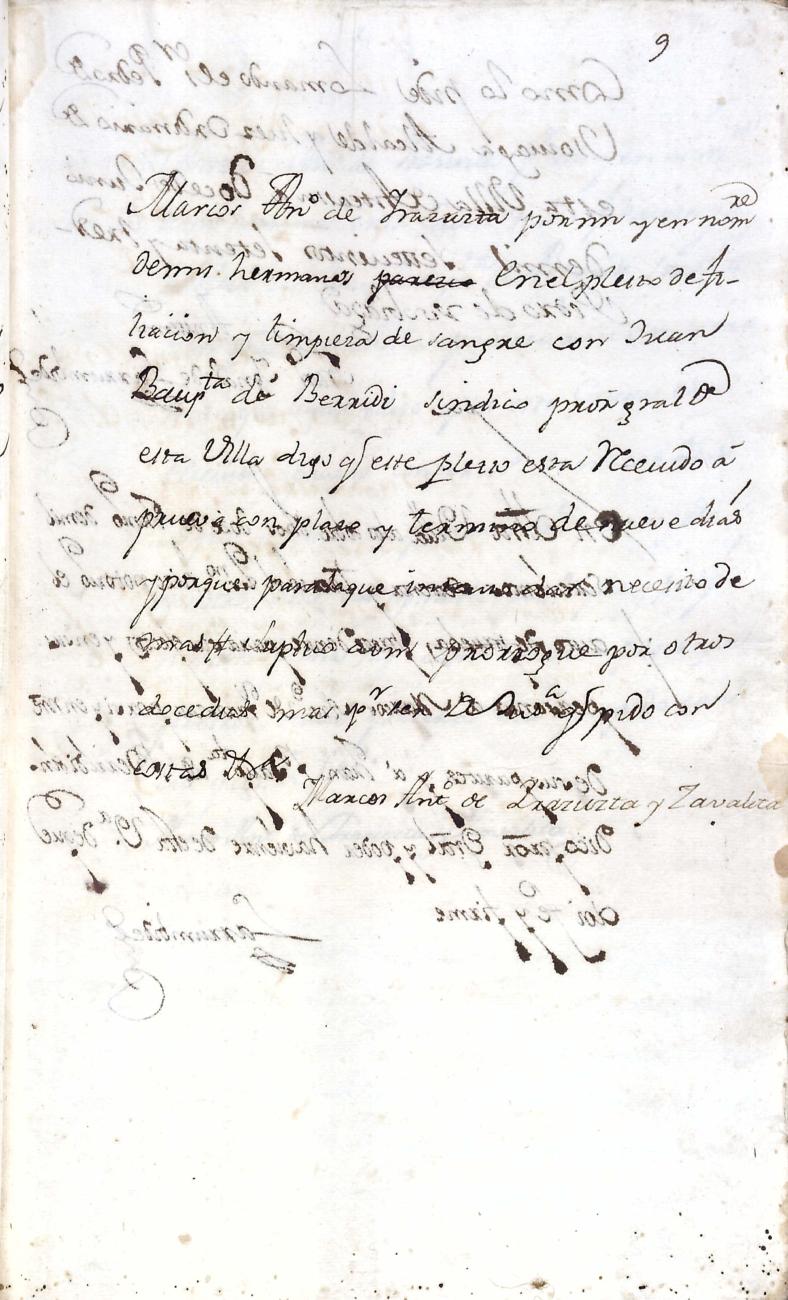 9
Marcos Anᵒ de Irazuzta por mi y en nomʳᵉ
de mis hermanos parezco En el pleito de fi-
liacion y limpieza de sangre con Juan
Baupᵗᵃ de Berridi sindico proñ gral de
esta Villa digo q este pleito esta Recevido â
prueva con plazo y termino de nueve dias
y porque para lo que necesito de
mas suplico a vm prorrogue por otros
doce dias mas pʳ ser de Jusᵃ q pido con
costas
Marcos Antᵒ de Irazuzta y Zavaleta